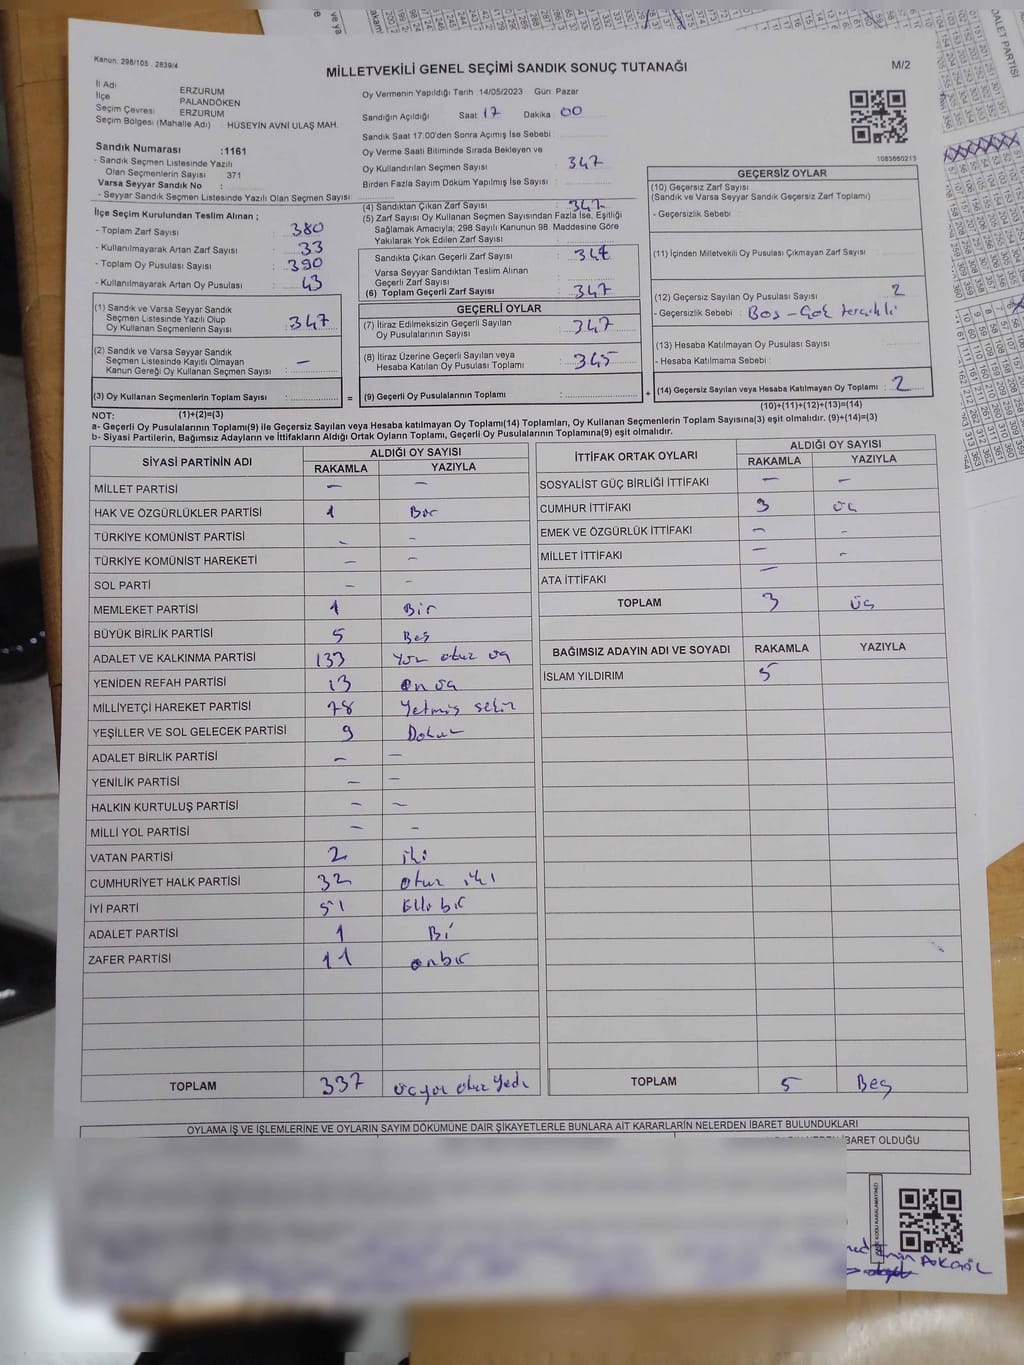 Kanun: 298/105 , 2839/4
MİLLETVEKİLİ GENEL SEÇİMİ SANDIK SONUÇ TUTANAĞI
M/2
İl Adı ERZURUM
İlçe PALANDÖKEN
Seçim Çevresi ERZURUM
Seçim Bölgesi (Mahalle Adı) : HÜSEYİN AVNİ ULAŞ MAH.
Sandık Numarası :1161
- Sandık Seçmen Listesinde Yazılı
Olan Seçmenlerin Sayısı 371
Varsa Seyyar Sandık No :
- Seyyar Sandık Seçmen Listesinde Yazılı Olan Seçmen Sayısı :
Oy Vermenin Yapıldığı Tarih 14/05/2023 Gün: Pazar
Sandığın Açıldığı Saat 17 Dakika 00
Sandık Saat 17.00'den Sonra Açımış İse Sebebi :
Oy Verme Saati Bitiminde Sırada Bekleyen ve
Oy Kullandırılan Seçmen Sayısı : 347
Birden Fazla Sayım Döküm Yapılmış İse Sayısı :
1083660213
İlçe Seçim Kurulundan Teslim Alınan ;
- Toplam Zarf Sayısı : 380
- Kullanılmayarak Artan Zarf Sayısı : 33
- Toplam Oy Pusulası Sayısı : 390
- Kullanılmayarak Artan Oy Pusulası : 43
(1) Sandık ve Varsa Seyyar Sandık
Seçmen Listesinde Yazılı Olup
Oy Kullanan Seçmenlerin Sayısı : 347
(2) Sandık ve Varsa Seyyar Sandık
Seçmen Listesinde Kayıtlı Olmayan
Kanun Gereği Oy Kullanan Seçmen Sayısı : —
(3) Oy Kullanan Seçmenlerin Toplam Sayısı : =
(4) Sandıktan Çıkan Zarf Sayısı : 347
(5) Zarf Sayısı Oy Kullanan Seçmen Sayısından Fazla İse, Eşitliği
Sağlamak Amacıyla; 298 Sayılı Kanunun 98. Maddesine Göre
Yakılarak Yok Edilen Zarf Sayısı :
Sandıkta Çıkan Geçerli Zarf Sayısı : 347
Varsa Seyyar Sandıktan Teslim Alınan
Geçerli Zarf Sayısı :
(6) Toplam Geçerli Zarf Sayısı : 347
GEÇERLİ OYLAR
(7) İtiraz Edilmeksizin Geçerli Sayılan
Oy Pusulalarının Sayısı : 347
(8) İtiraz Üzerine Geçerli Sayılan veya
Hesaba Katılan Oy Pusulası Toplamı : 345
(9) Geçerli Oy Pusulalarının Toplamı : +
GEÇERSİZ OYLAR
(10) Geçersiz Zarf Sayısı
(Sandık ve Varsa Seyyar Sandık Geçersiz Zarf Toplamı) :
- Geçersizlik Sebebi :
(11) İçinden Milletvekili Oy Pusulası Çıkmayan Zarf Sayısı :
(12) Geçersiz Sayılan Oy Pusulası Sayısı : 2
- Geçersizlik Sebebi : Boş - Çok tercihli
(13) Hesaba Katılmayan Oy Pusulası Sayısı :
- Hesaba Katılmama Sebebi :
(14) Geçersiz Sayılan veya Hesaba Katılmayan Oy Toplamı : 2
NOT: (1)+(2)=(3) (10)+(11)+(12)+(13)=(14)
a- Geçerli Oy Pusulalarının Toplamı(9) ile Geçersiz Sayılan veya Hesaba katılmayan Oy Toplamı(14) Toplamları, Oy Kullanan Seçmenlerin Toplam Sayısına(3) eşit olmalıdır. (9)+(14)=(3)
b- Siyasi Partilerin, Bağımsız Adayların ve İttifakların Aldığı Ortak Oyların Toplamı, Geçerli Oy Pusulalarının Toplamına(9) eşit olmalıdır.
SİYASİ PARTİNİN ADI ALDIĞI OY SAYISI
RAKAMLA YAZIYLA
MİLLET PARTİSİ — —
HAK VE ÖZGÜRLÜKLER PARTİSİ 1 Bir
TÜRKİYE KOMÜNİST PARTİSİ - -
TÜRKİYE KOMÜNİST HAREKETİ - -
SOL PARTİ - -
MEMLEKET PARTİSİ 1 Bir
BÜYÜK BİRLİK PARTİSİ 5 Beş
ADALET VE KALKINMA PARTİSİ 133 Yüz otuz üç
YENİDEN REFAH PARTİSİ 13 on üç
MİLLİYETÇİ HAREKET PARTİSİ 78 Yetmiş sekiz
YEŞİLLER VE SOL GELECEK PARTİSİ 9 Dokuz
ADALET BİRLİK PARTİSİ - -
YENİLİK PARTİSİ - -
HALKIN KURTULUŞ PARTİSİ - -
MİLLİ YOL PARTİSİ - -
VATAN PARTİSİ 2 iki
CUMHURİYET HALK PARTİSİ 32 otuz iki
İYİ PARTİ 51 Elli bir
ADALET PARTİSİ 1 Bi
ZAFER PARTİSİ 11 onbir
TOPLAM 337 üçyüz otuz yedi
İTTİFAK ORTAK OYLARI ALDIĞI OY SAYISI
RAKAMLA YAZIYLA
SOSYALİST GÜÇ BİRLİĞİ İTTİFAKI - -
CUMHUR İTTİFAKI 3 üç
EMEK VE ÖZGÜRLÜK İTTİFAKI - -
MİLLET İTTİFAKI - -
ATA İTTİFAKI -
TOPLAM 3 üç
BAĞIMSIZ ADAYIN ADI VE SOYADI RAKAMLA YAZIYLA
İSLAM YILDIRIM 5
TOPLAM 5 Beş
OYLAMA İŞ VE İŞLEMLERİNE VE OYLARIN SAYIM DÖKÜMÜNE DAİR ŞİKAYETLERLE BUNLARA AİT KARARLARİN NELERDEN İBARET BULUNDUKLARI
İBARET OLDUĞU